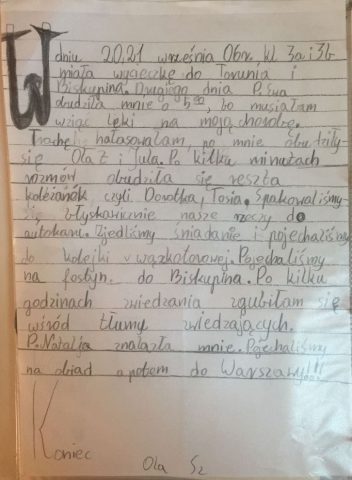 W dniu 20,21 września Obr. kl 3a i 3b
miała wycieczkę do Torunia i
Biskupina. Drugiego dnia P. Ewa
obudziła mnie o 5⁰⁰, bo musiałam
wziąć leki na moją chorobę.
Trochę hałasowałam, po mnie obudziły
się Ola Z i Jula. Po kilku minutach
rozmów obudziła się reszta
koleżanek czyli Dorotka, Tosia. Spakowaliśmy
się błyskawicznie nasze rzeczy do
autokaru. Zjedliśmy śniadanie i pojechaliśmy
do kolejki wązkotorowej. Pojechaliśmy
na do Biskupina. Po kilku
godzinach zwiedzania zgubiłam się
wśród tłumy zwiedzających.
P. Natalja znalazła mnie. Pojechaliśmy
na obiad a potem do Warszawy!!!
Koniec
Ola Sz